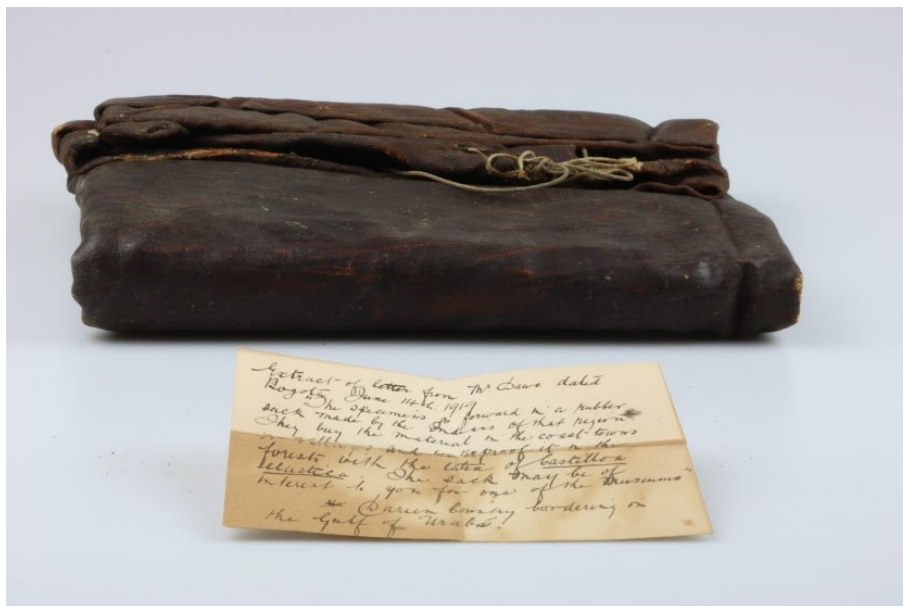 Extract of letter from Mr Dawe dated
Bogotá, June 14th. 1919
"The specimens go forward in a rubber
sack made by the Indians of that region
They buy the material in the coast towns
or villages and waterproof it in the
forests with the latex of Castilloa
elastica. The sack may be of
interest to you for one of the Museums"
Darien Country bordering on
the Gulf of Uraba.